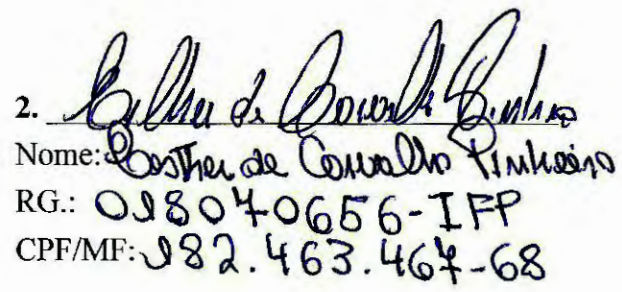 2. Esther de Carvalho Pinheiro
Nome: Esther de Carvalho Pinheiro
RG.: 018070656-IFP
CPF/MF: 182.463.467-68